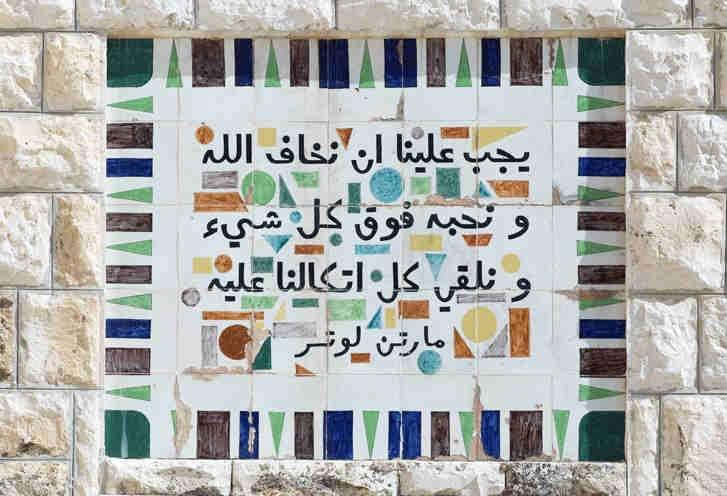 يجب علينا ان نخاف الله
و نحبه فوق كل شيء
و نلقي كل اتكالنا عليه
مارتن لوثر